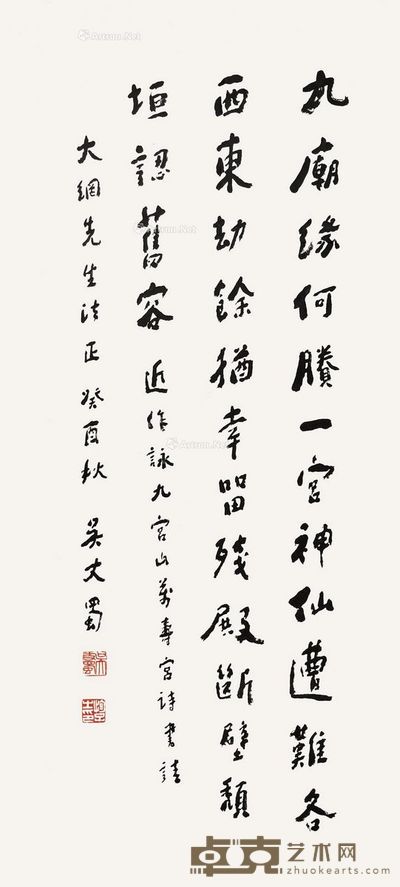 九廟緣何賸一宮神仙遭難各
西東劫餘猶幸留殘殿斷壁頹
垣認舊容
近作詠九宮山萬壽宮詩書請
大綱先生法正癸酉秋 吴丈蜀
卓克艺术网
zhuokearts.com
Artron.Net